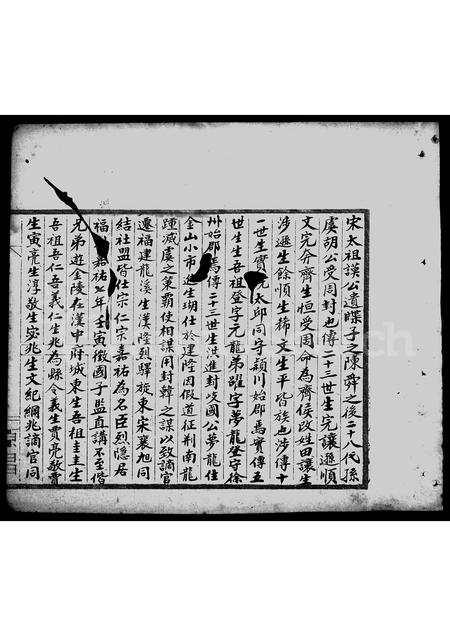 宋太祖謨公遺牒子之陳舜之後二十八代孫
虞胡公受周封也傳二十三世生完讓遜順
文完奔齊生恒受周命為齊侯改姓田讓生
涉遜生餘順生稀文生平皆族也涉傳十
一世生實 太邱同守潁川始郡焉實傳五
世生生吾祖登字元龍弟躍字夢龍登守徐
州始郡焉傳二十三世生洪進封岐國公夢龍住
金山小市 進生瑚仕於建隆因假道征荆南龍
踵滅虞之策霸使相謀用封韓之謀以致謫官
遷福建龍溪生漢隆烈驛旋東宋襄旭同
結社盟皆仕宗仁宗嘉祐為名臣烈隱居
福 嘉祐七年壬寅徵國子監直講不至偕
兄弟遊金陵在漢中府城東生吾祖圭圭生
吾祖吾仁吾義仁生兆為縣令義生賈亮敬賈
生寅亮生淳敬生宓兆生文紀綱兆謫官同